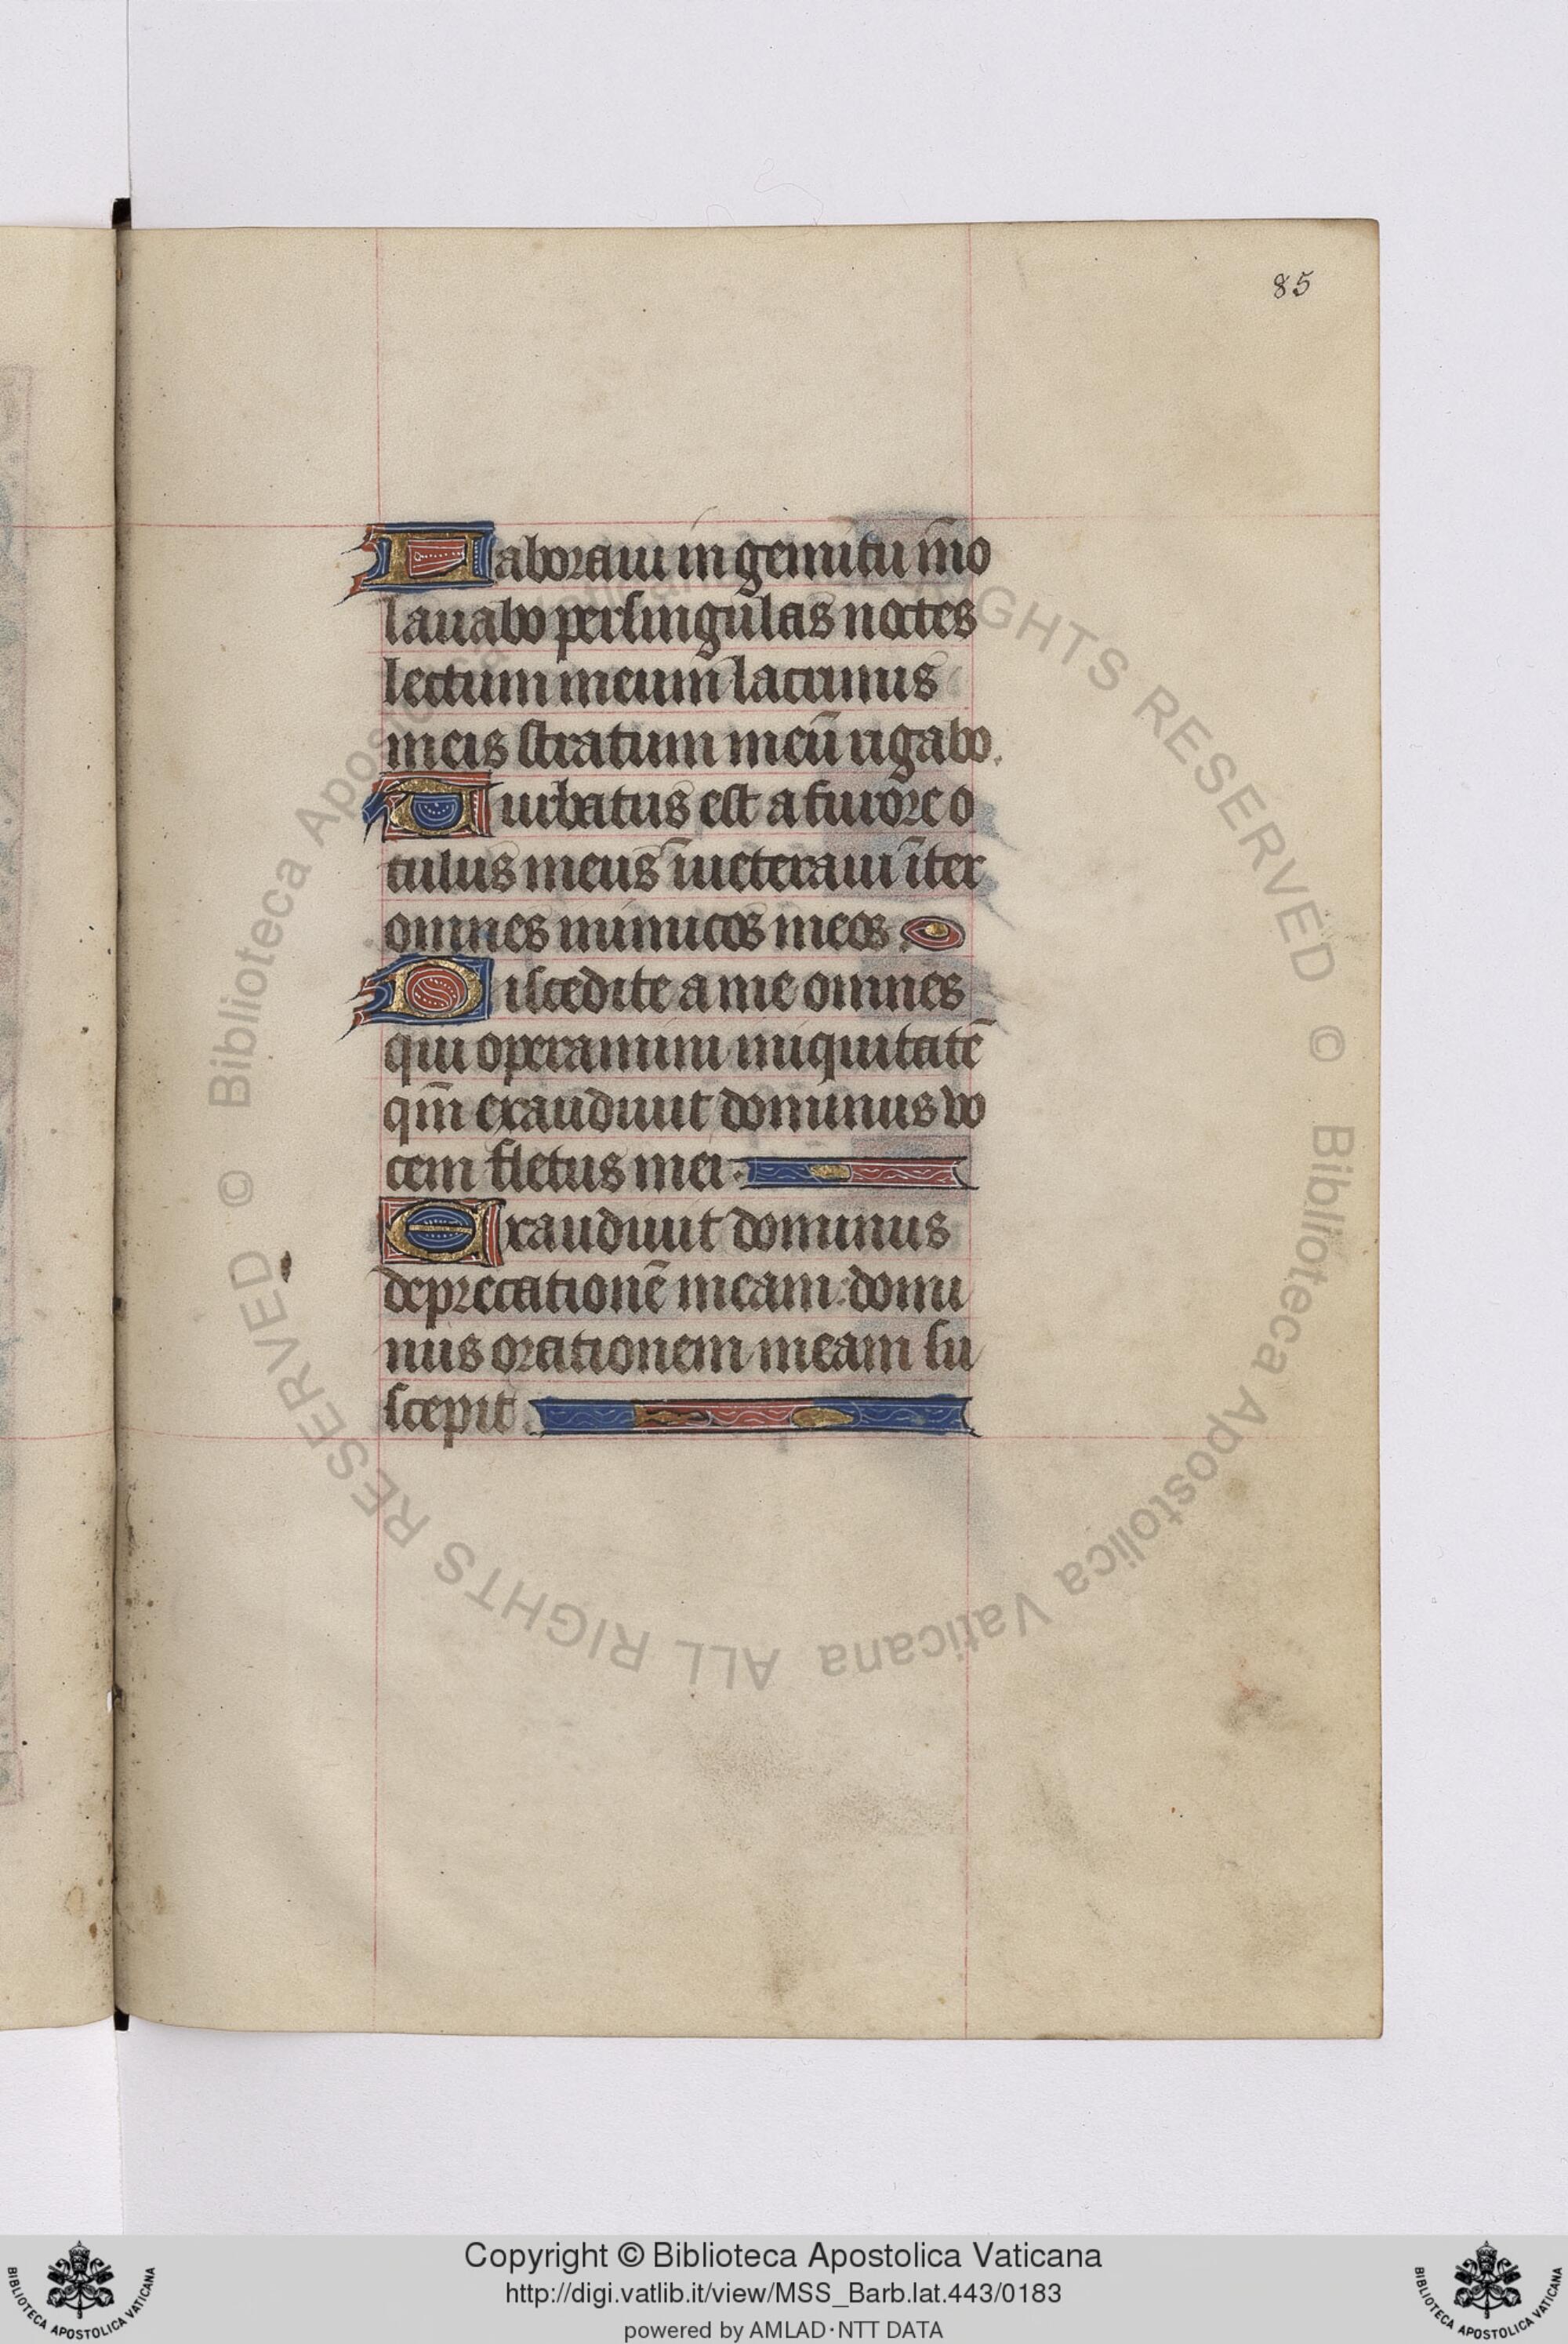 85
Laboraui in gemitu m̄o
lauabo per singulas noctes
lectum meum lacrimis
meis stratum meū rigabo.
Turbatus est a furore o
culus meus īueteraui īter
omnes inimicos meos.
Discedite a me omnes
qui operamini iniquitatē
qm̄ exaudiuit dominus vo
cem fletus mei.
Exaudiuit dominus
deprecationē meam: domi
nus orationem meam su
scepit.
© Biblioteca Apostolica Vaticana ALL RIGHTS RESERVED
© Biblioteca Apostolica Vaticana ALL RIGHTS RESERVED
Copyright © Biblioteca Apostolica Vaticana
http://digi.vatlib.it/view/MSS_Barb.lat.443/0183
powered by AMLAD·NTT DATA
BIBLIOTECA APOSTOLICA VATICANA
BIBLIOTECA APOSTOLICA VATICANA